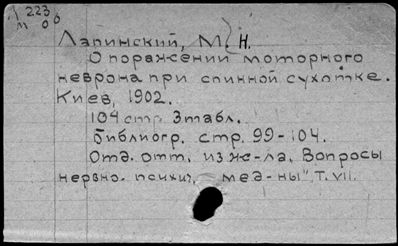 Л 223
М 06
Лапинский, М. Н.
О поражении моторного
неврона при спинной сухотке.
Киев, 1902.
104 стр. 3 табл.
Библиогр. стр. 99-104.
Отд. отт. из ж-ла. Вопросы
нервно-психич. мед-ны", т. VII.